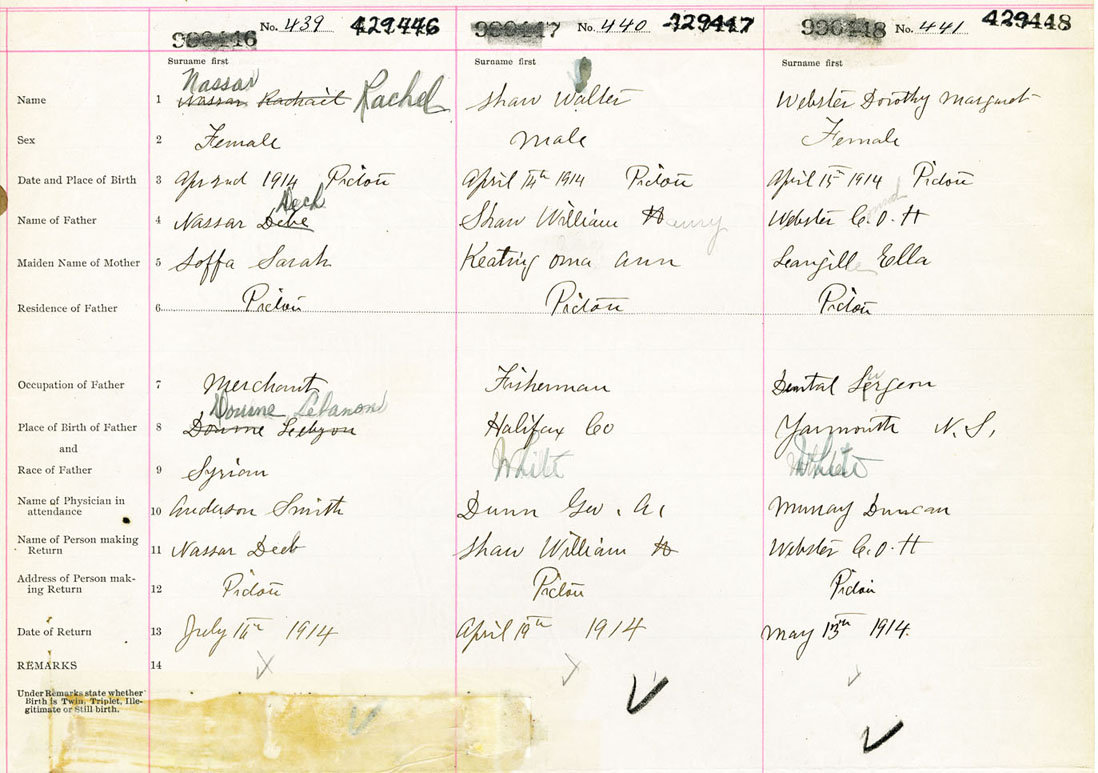 No. 439 429446 No. 440 429447 No. 441 429448
990446 990448
Surname first Surname first Surname first
Nassar
Name 1 Nassar Rachail Rachel Shaw Walter Webster Dorothy Margaret
Sex 2 Female Male Female
Date and Place of Birth 3 Apr 2nd 1914 Pictou April 14th 1914 Pictou April 15 1914 Pictou
Deeb
Name of Father 4 Nassar Debe Shaw William H Henry Webster C. O. H
Maiden Name of Mother 5 Soffa Sarah Keating Oma Ann Langille Ella
Residence of Father 6 Pictou Pictou Pictou
Occupation of Father 7 Merchant Fisherman Dental Surgeon
Doume Lebanon
Place of Birth of Father 8 Doume Halifax Co Yarmouth N. S,
and
Race of Father 9 Syrian White White
Name of Physician in
attendance 10 Anderson Smith Dunn Geo. A. Murray Duncan
Name of Person making
Return 11 Nassar Deeb Shaw William H Webster C. O. H
Address of Person mak-
ing Return 12 Pictou Pictou Pictou
Date of Return 13 July 14th 1914 April 19th 1914 May 13th 1914.
REMARKS 14
Under Remarks state whether
Birth is Twin, Triplet, Ille-
gitimate or Still-birth.